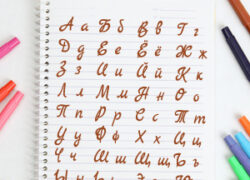 А а Б б В в Г г
Д д Е е Ё ё Ж ж
З з И и Й й К к
Л л М м Н н О о
П п Р р С с Т т
У у Ф ф Х х Ц ц
Ч ч Ш ш Щ щ Ъ ъ